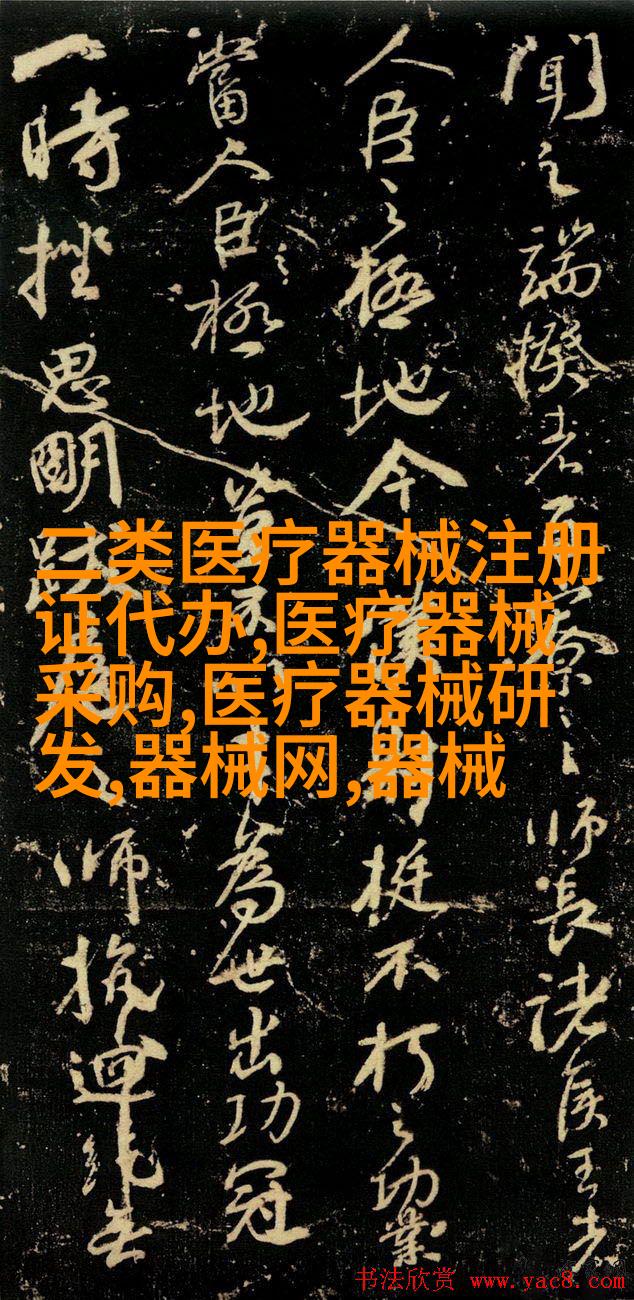 聞之端揆者百寮之師長諸侯王者
人臣之極地今僕射挺不朽之功業
當人臣之極地豈不為世出功冠
一時挫思明跋師抗迴紇無
二类医疗器械注册
证代办,医疗器械
采购,医疗器械研
发,器械网,器械
书法欣赏 www.yac8.com